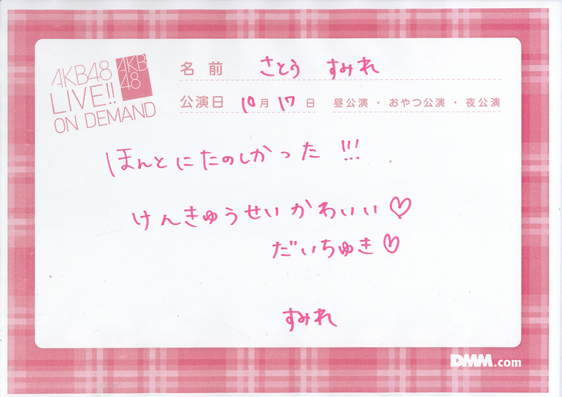 AKB48
LIVE!!
ON DEMAND
AKB
48
名前 さとう すみれ
公演日 10月17日 昼公演・おやつ公演・夜公演
ほんとにたのしかった!!!
けんきゅうせいかわいい♡
だいちゅき♡
すみれ
DMM.com